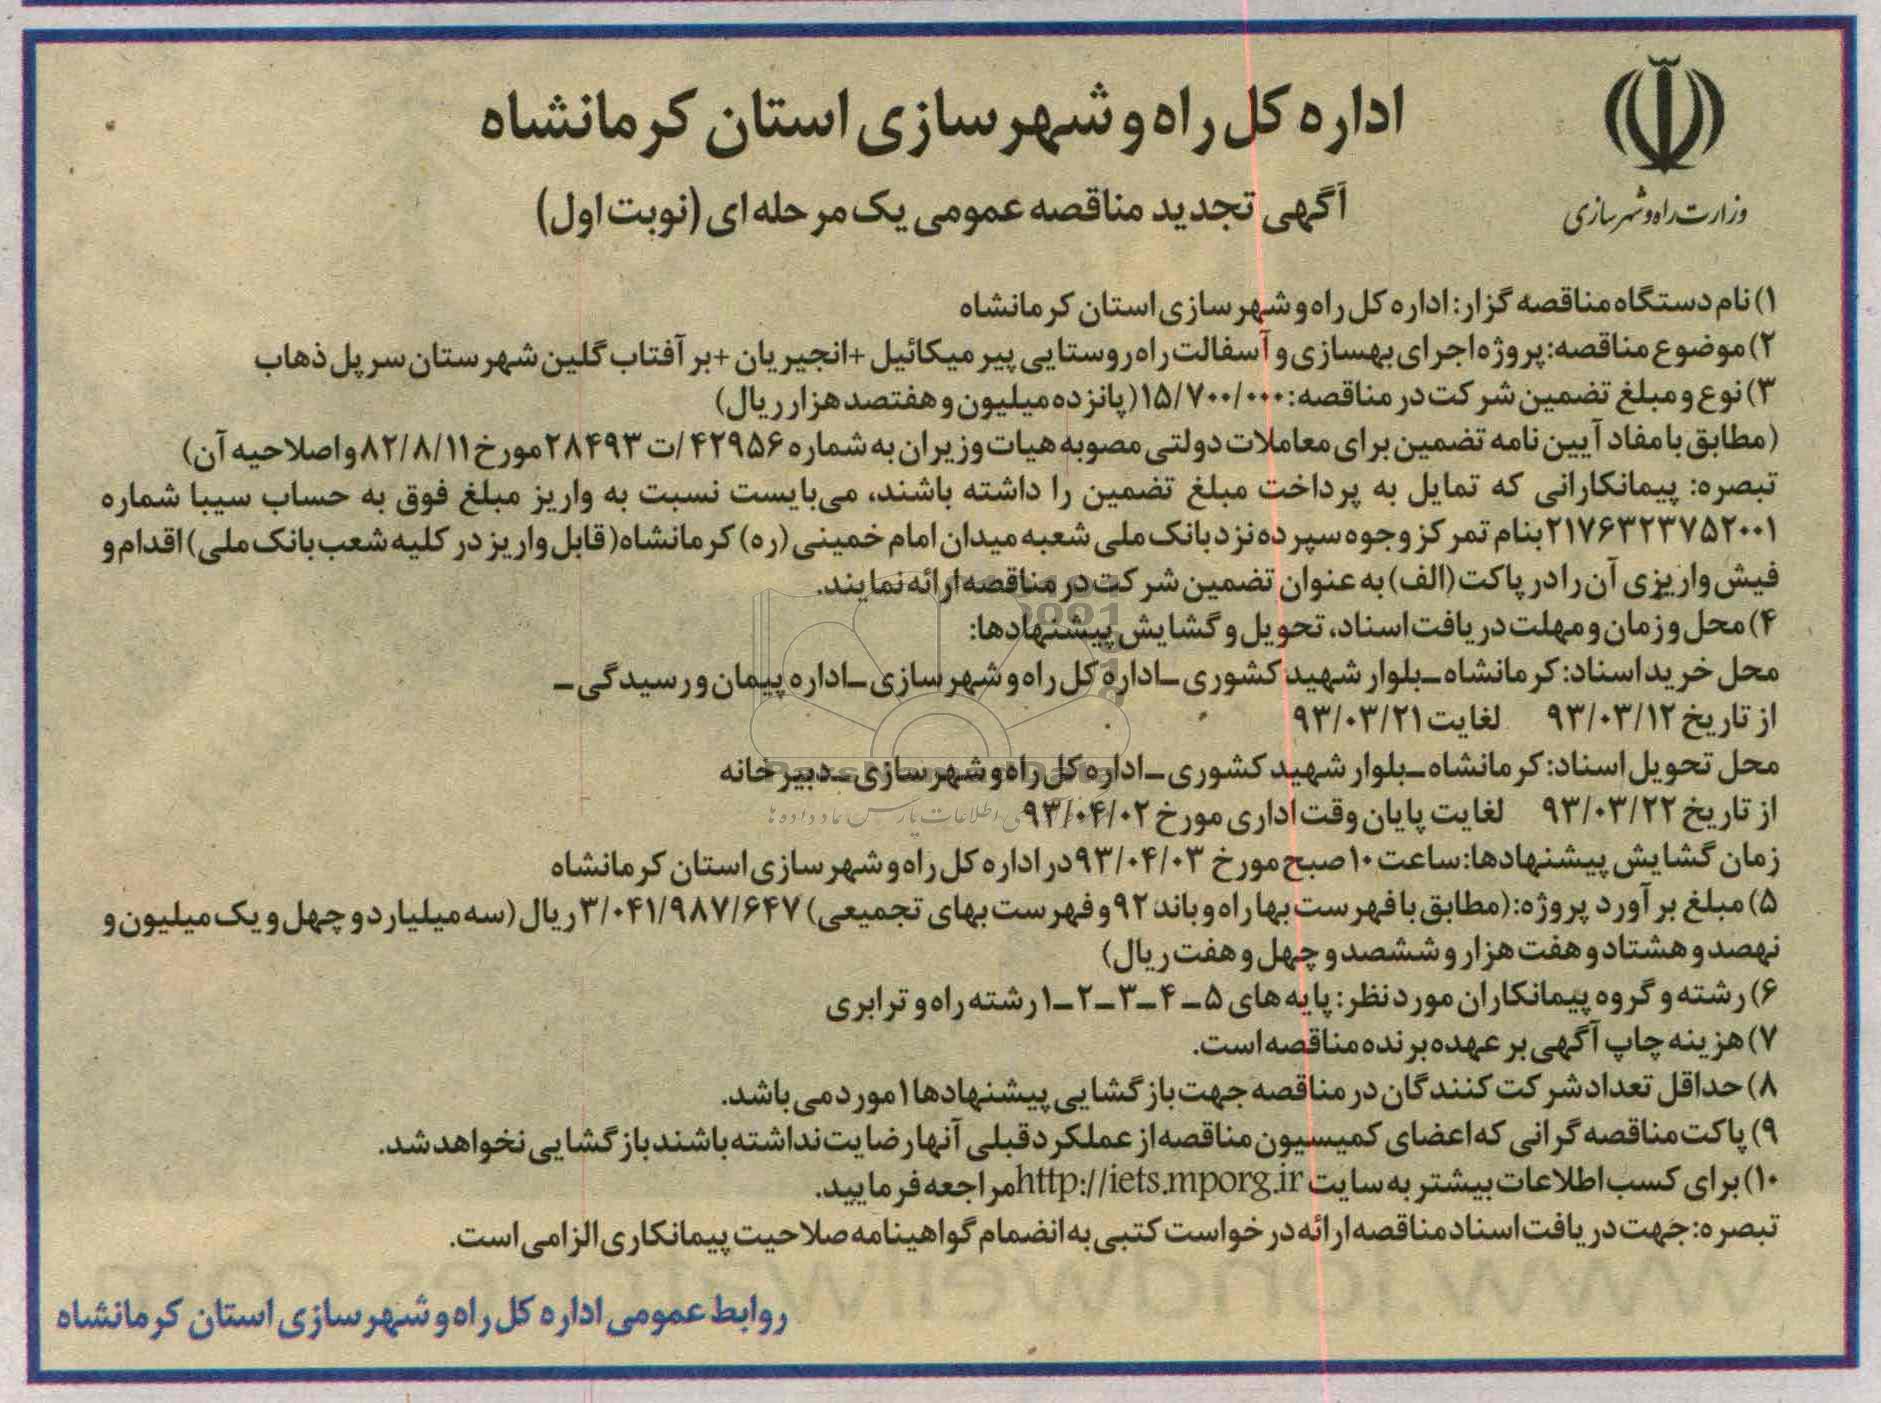 اداره کل راه و شهرسازی استان کرمانشاه
وزارت راه و شهرسازی
آگهی تجدید مناقصه عمومی یک مرحله ای (نوبت اول)
۱) نام دستگاه مناقصه گزار: اداره کل راه و شهرسازی استان کرمانشاه
۲) موضوع مناقصه: پروژه اجرای بهسازی و آسفالت راه روستایی پیر میکائیل +انجیریان +بر آفتاب گلین شهرستان سرپل ذهاب
۳) نوع و مبلغ تضمین شرکت در مناقصه: ۱۵/۷۰۰/۰۰۰ (پانزده میلیون و هفتصد هزار ریال)
(مطابق با مفاد آیین نامه تضمین برای معاملات دولتی مصوبه هیات وزیران به شماره ۴۲۹۵۶ /ت ۲۸۴۹۳ مورخ ۸۲/۸/۱۱ و اصلاحیه آن)
تبصره: پیمانکارانی که تمایل به پرداخت مبلغ تضمین را داشته باشند، می‌بایست نسبت به واریز مبلغ فوق به حساب سیبا شماره
۲۱۷۶۳۲۳۷۵۲۰۰۱ بنام تمرکز وجوه سپرده نزد بانک ملی شعبه میدان امام خمینی (ره) کرمانشاه (قابل واریز در کلیه شعب بانک ملی) اقدام و
فیش واریزی آن را در پاکت (الف) به عنوان تضمین شرکت در مناقصه ارائه نمایند.
۴) محل و زمان و مهلت دریافت اسناد، تحویل و گشایش پیشنهادها:
محل خرید اسناد: کرمانشاه ـ بلوار شهید کشوری ـ اداره کل راه و شهرسازی ـ اداره پیمان و رسیدگی ـ
از تاریخ ۹۳/۰۳/۱۲ لغایت ۹۳/۰۳/۲۱
محل تحویل اسناد: کرمانشاه ـ بلوار شهید کشوری ـ اداره کل راه و شهرسازی ـ دبیرخانه
از تاریخ ۹۳/۰۳/۲۲ لغایت پایان وقت اداری مورخ ۹۳/۰۴/۰۲
زمان گشایش پیشنهادها: ساعت ۱۰ صبح مورخ ۹۳/۰۴/۰۳ در اداره کل راه و شهرسازی استان کرمانشاه
۵) مبلغ برآورد پروژه: (مطابق با فهرست بها راه و باند ۹۲ و فهرست بهای تجمیعی) ۳/۰۴۱/۹۸۷/۶۴۷ ریال (سه میلیارد و چهل و یک میلیون و
نهصد و هشتاد و هفت هزار و ششصد و چهل و هفت ریال)
۶) رشته و گروه پیمانکاران مورد نظر: پایه های ۵ ـ ۴ ـ ۳ ـ ۲ ـ ۱ رشته راه و ترابری
۷) هزینه چاپ آگهی بر عهده برنده مناقصه است.
۸) حداقل تعداد شرکت کنندگان در مناقصه جهت بازگشایی پیشنهادها ۱ مورد می باشد.
۹) پاکت مناقصه گرانی که اعضای کمیسیون مناقصه از عملکرد قبلی آنها رضایت نداشته باشند بازگشایی نخواهد شد.
۱۰) برای کسب اطلاعات بیشتر به سایت http://iets.mporg.ir مراجعه فرمایید.
تبصره: جهت دریافت اسناد مناقصه ارائه درخواست کتبی به انضمام گواهینامه صلاحیت پیمانکاری الزامی است.
روابط عمومی اداره کل راه و شهرسازی استان کرمانشاه